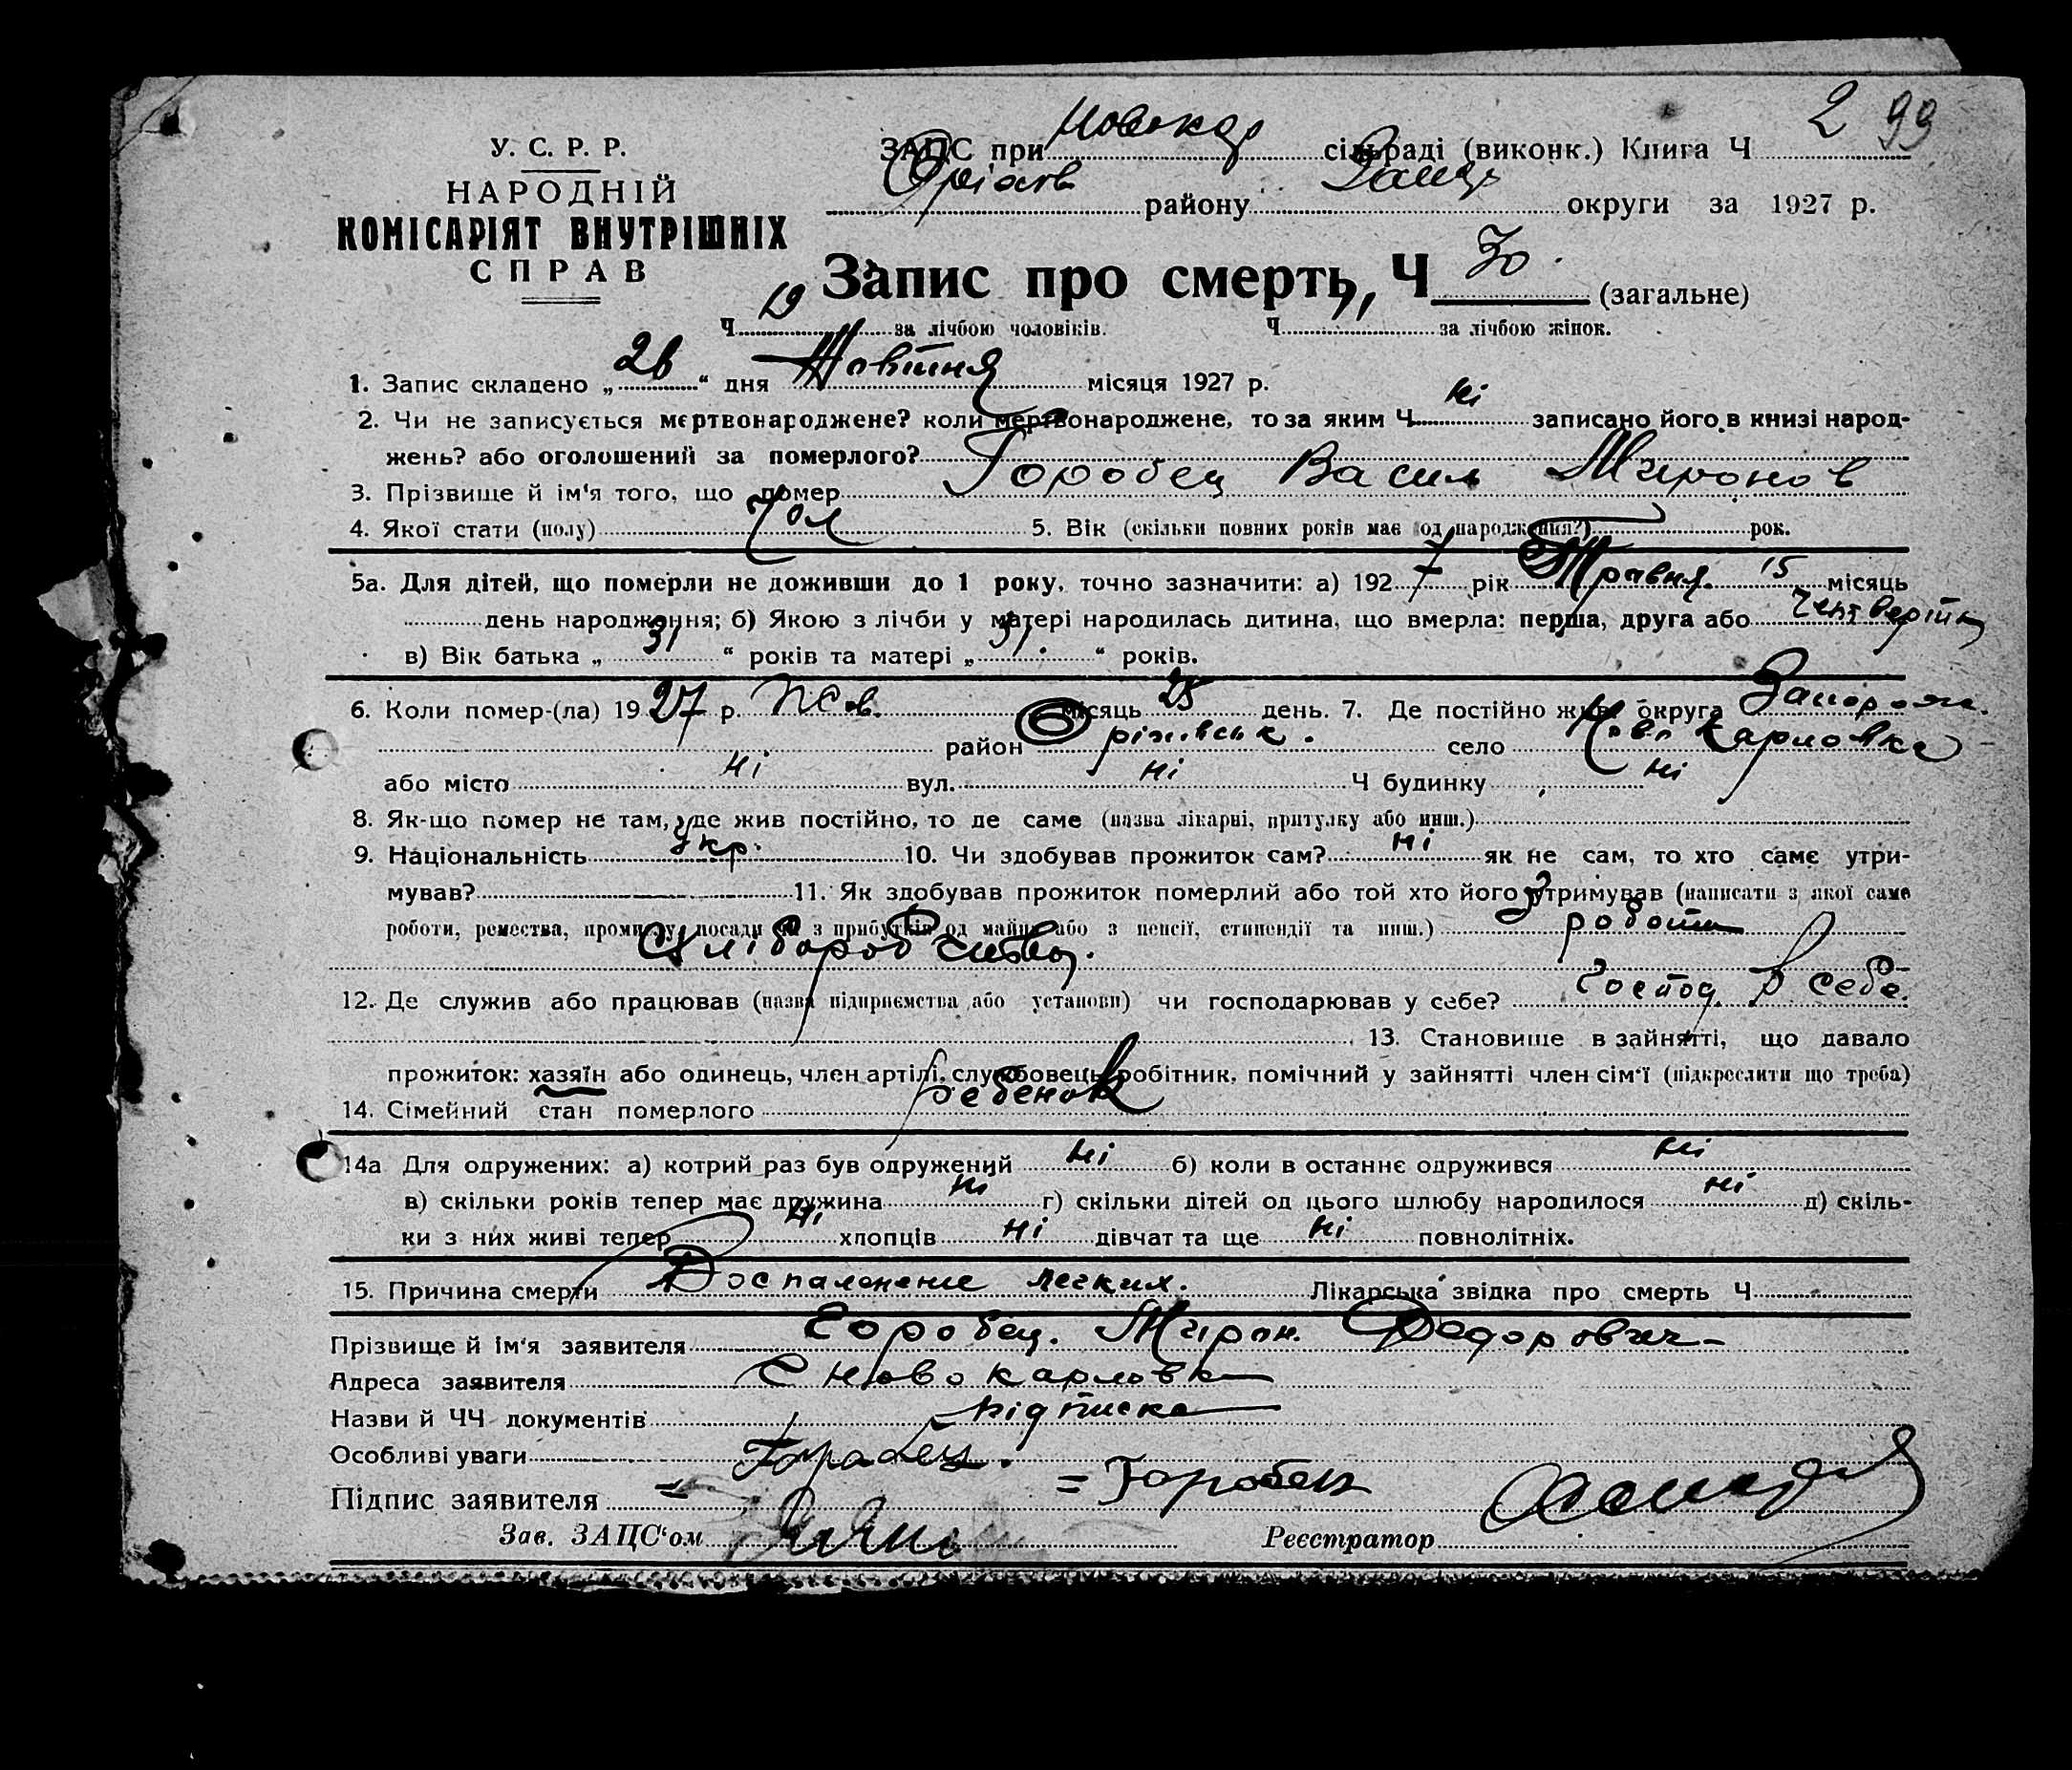 2 99
У. С. Р. Р.
НАРОДНІЙ
КОМІСАРІЯТ ВНУТРІШНІХ
СПРАВ
ЗАПС при Новокар сільраді (виконк.) Книга Ч
Оріхів району Запор округи за 1927 р.
Запис про смерть, Ч 30. (загальне)
Ч 19 за лічбою чоловіків. Ч 11 за лічбою жінок.
1. Запис складено „26“ дня Жовтня місяця 1927 р.
2. Чи не записується мертвонароджене? коли мертвонароджене, то за яким Ч ні записано його в книзі народ-
жень? або оголошений за померлого?
3. Прізвище й ім‘я того, що помер Горобец Васил Миронов
4. Якої стати (полу) Чол 5. Вік (скільки повних років має од народження?) рок.
5а. Для дітей, що померли не доживши до 1 року, точно зазначити: а) 1927 рік Травня 15 місяць
день народження; б) Якою з лічби у матері народилась дитина, що вмерла: перша, друга або
в) Вік батька „31“ років та матері „31“ років.
6. Коли помер-(ла) 1927 р. Жов. місяць 25 день. 7. Де постійно жив: округа Запорож.
район Оріхівськ. село Ново Карловка
або місто ні вул. ні Ч будинку ні
8. Як-що помер не там, де жив постійно, то де саме (назва лікарні, притулку або инш.)
9. Національність Укр. 10. Чи здобував прожиток сам? ні як не сам, то хто саме утри-
мував? 11. Як здобував прожиток померлий або той хто його утримував (написати з якої саме
роботи, ремества, промислу, посади чи з прибутків од майна або з пенсії, стипендії та инш.) З роботи
Хліборобства.
12. Де служив або працював (назва підприємства або установи) чи господарював у себе? Господ. в себе.
13. Становище в зайнятті, що давало
прожиток: хазяїн або одинець, член артілі, службовець, робітник, помічний у зайнятті член сім‘ї (підкреслити що треба)
14. Сімейний стан померлого Ребенок
14а Для одружених: а) котрий раз був одружений ні б) коли в останнє одружився ні
в) скільки років тепер має дружина ні г) скільки дітей од цього шлюбу народилося ні д) скіль-
ки з них живі тепер ні хлопців ні дівчат та ще ні повнолітніх.
15. Причина смерти Воспаленение легких. Лікарська звідка про смерть Ч
Прізвище й ім‘я заявителя Горобец. Мирон. Федорович
Адреса заявителя С Ново карловка
Назви й ЧЧ документів підписка
Особливі уваги
Підпис заявителя = Горабец. = Горобец
Зав. ЗАЦС‘ом Реєстратор